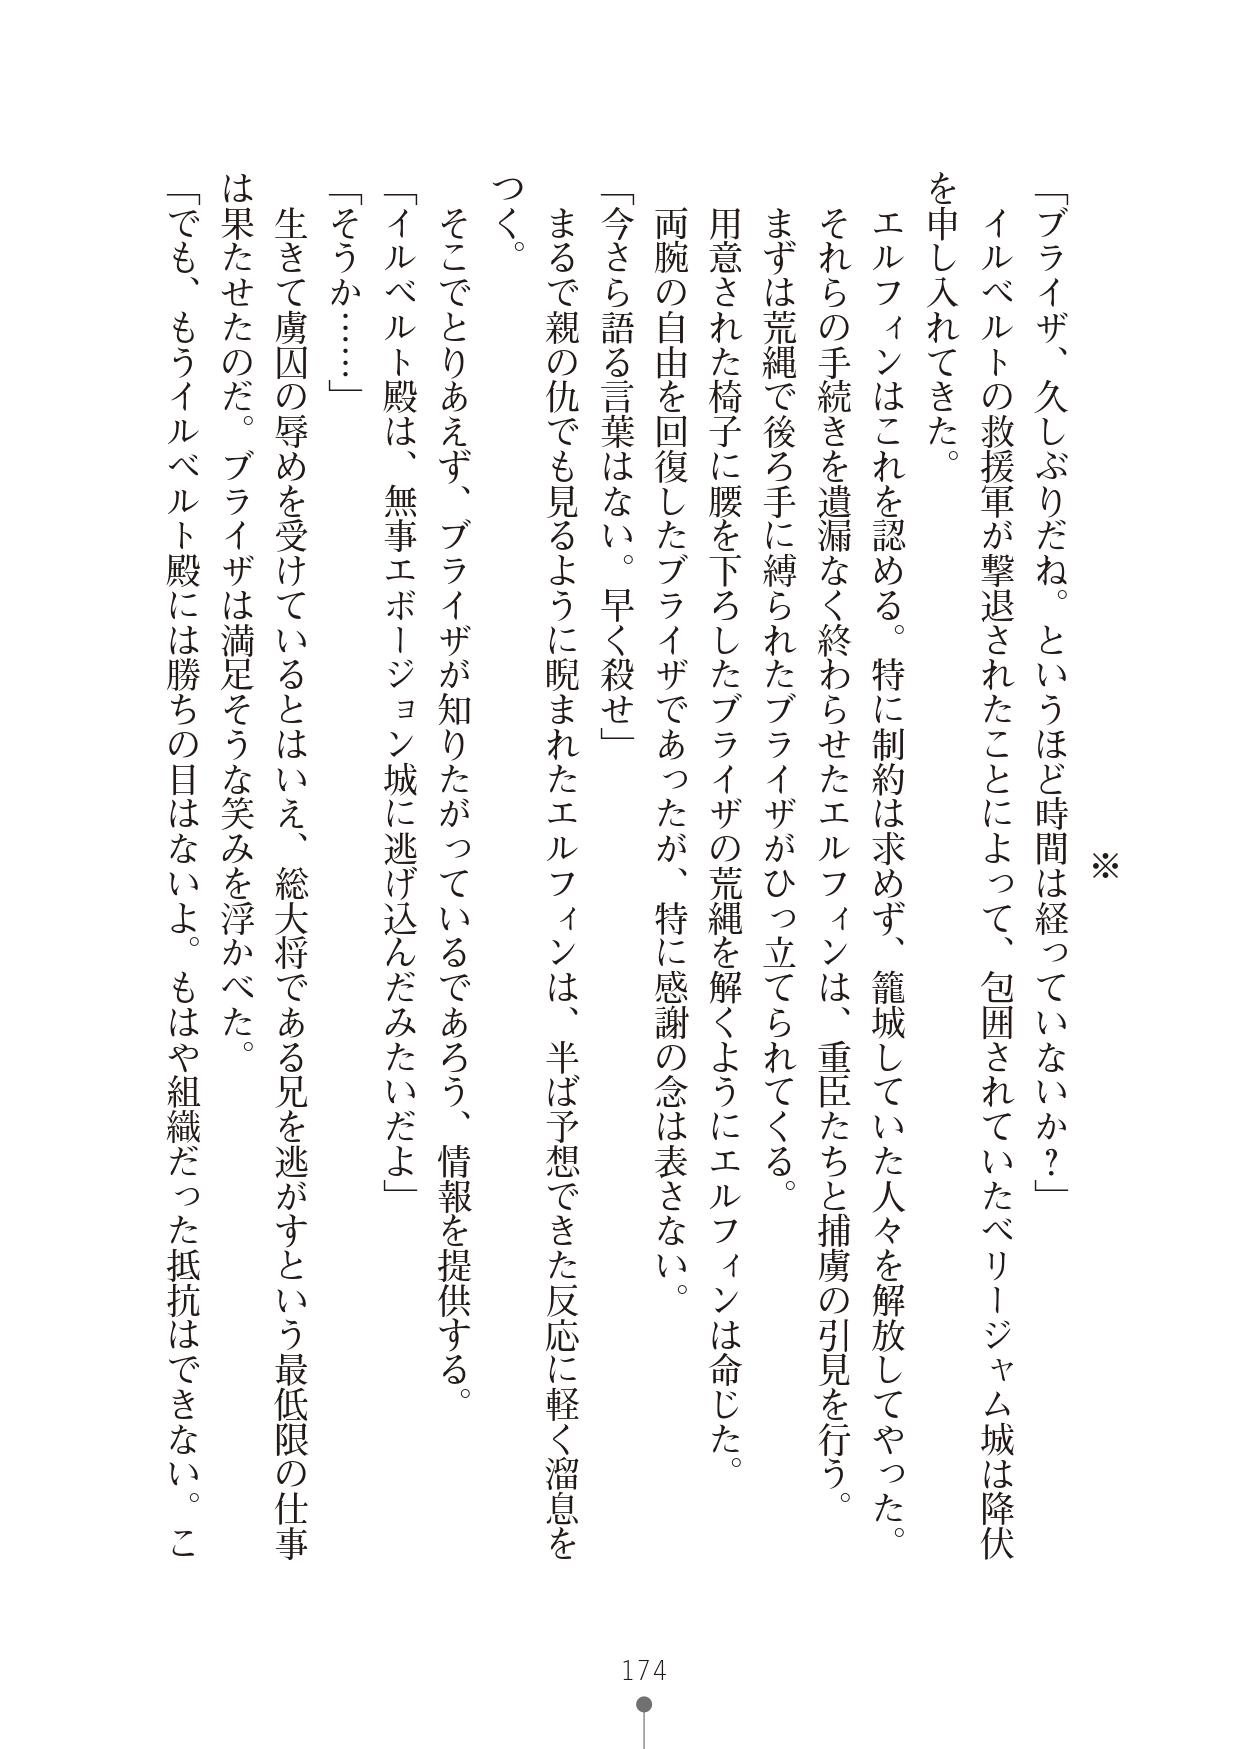 ※
「ブライザ、久しぶりだね。というほど時間は経っていないか？」
イルベルトの救援軍が撃退されたことによって、包囲されていたベリージャム城は降伏
を申し入れてきた。
エルフィンはこれを認める。特に制約は求めず、籠城していた人々を解放してやった。
それらの手続きを遺漏なく終わらせたエルフィンは、重臣たちと捕虜の引見を行う。
まずは荒縄で後ろ手に縛られたブライザがひっ立てられてくる。
用意された椅子に腰を下ろしたブライザの荒縄を解くようにエルフィンは命じた。
両腕の自由を回復したブライザであったが、特に感謝の念は表さない。
「今さら語る言葉はない。早く殺せ」
まるで親の仇でも見るように睨まれたエルフィンは、半ば予想できた反応に軽く溜息を
つく。
そこでとりあえず、ブライザが知りたがっているであろう、情報を提供する。
「イルベルト殿は、無事エボージョン城に逃げ込んだみたいだよ」
「そうか……」
生きて虜囚の辱めを受けているとはいえ、総大将である兄を逃がすという最低限の仕事
は果たせたのだ。ブライザは満足そうな笑みを浮かべた。
「でも、もうイルベルト殿には勝ちの目はないよ。もはや組織だった抵抗はできない。こ
174